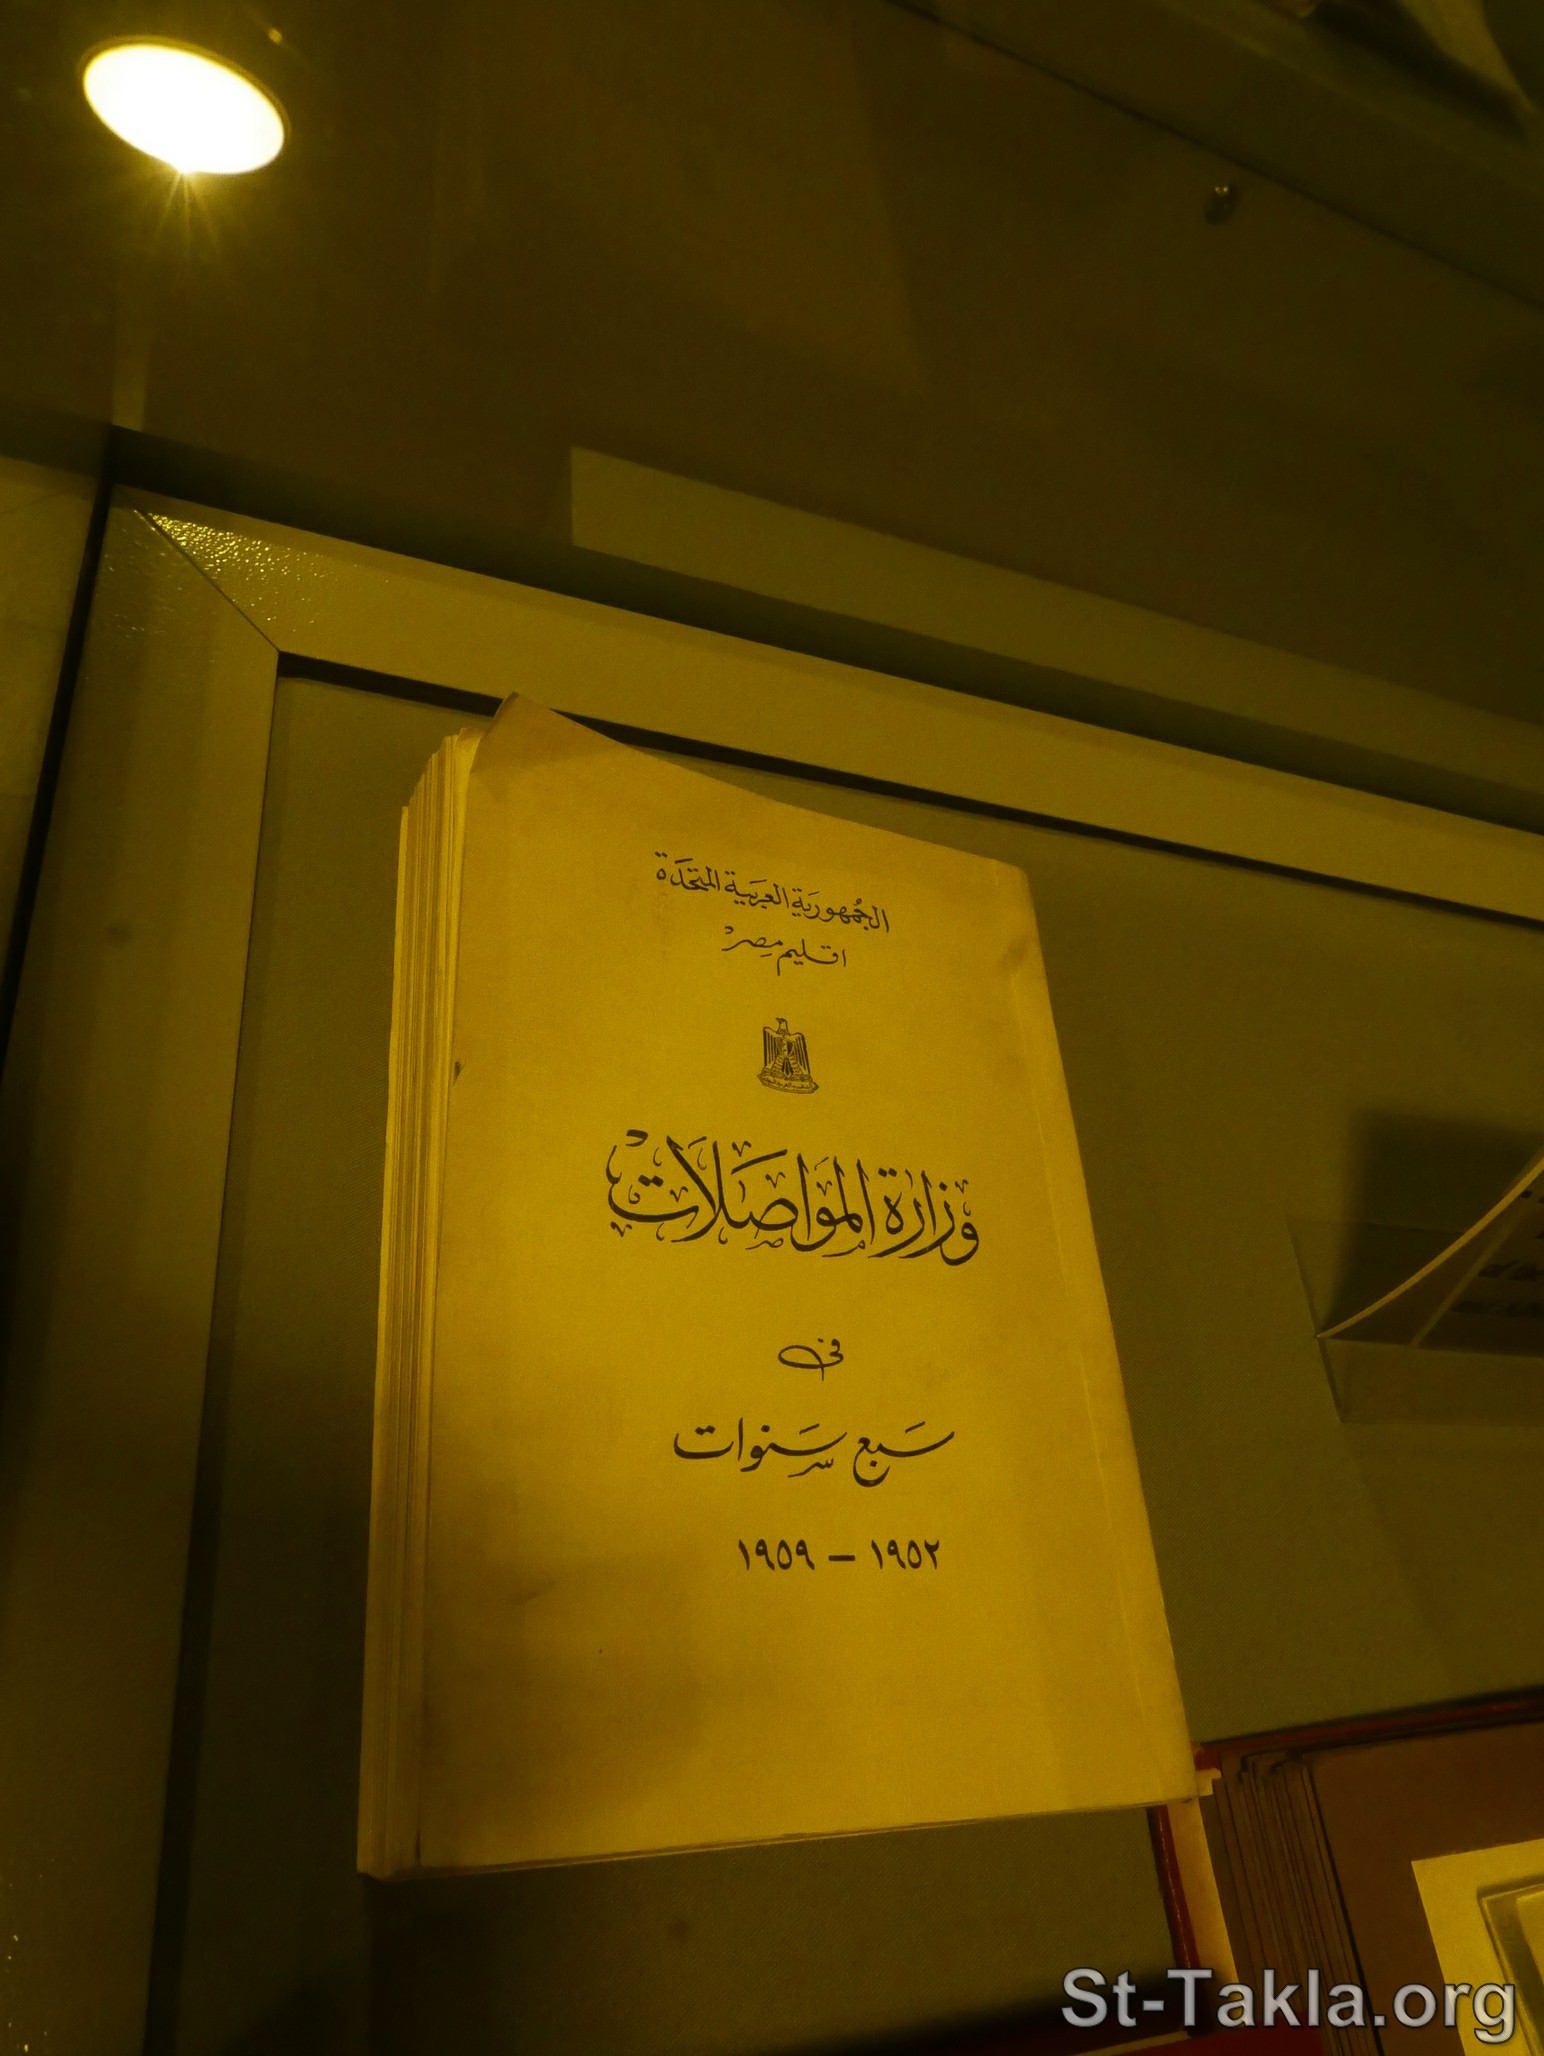 الجمهورية العربية المتحدة
اقليم مصر
وزارة المواصلات
في
سبع سنوات
١٩٥٢ – ١٩٥٩
St-Takla.org